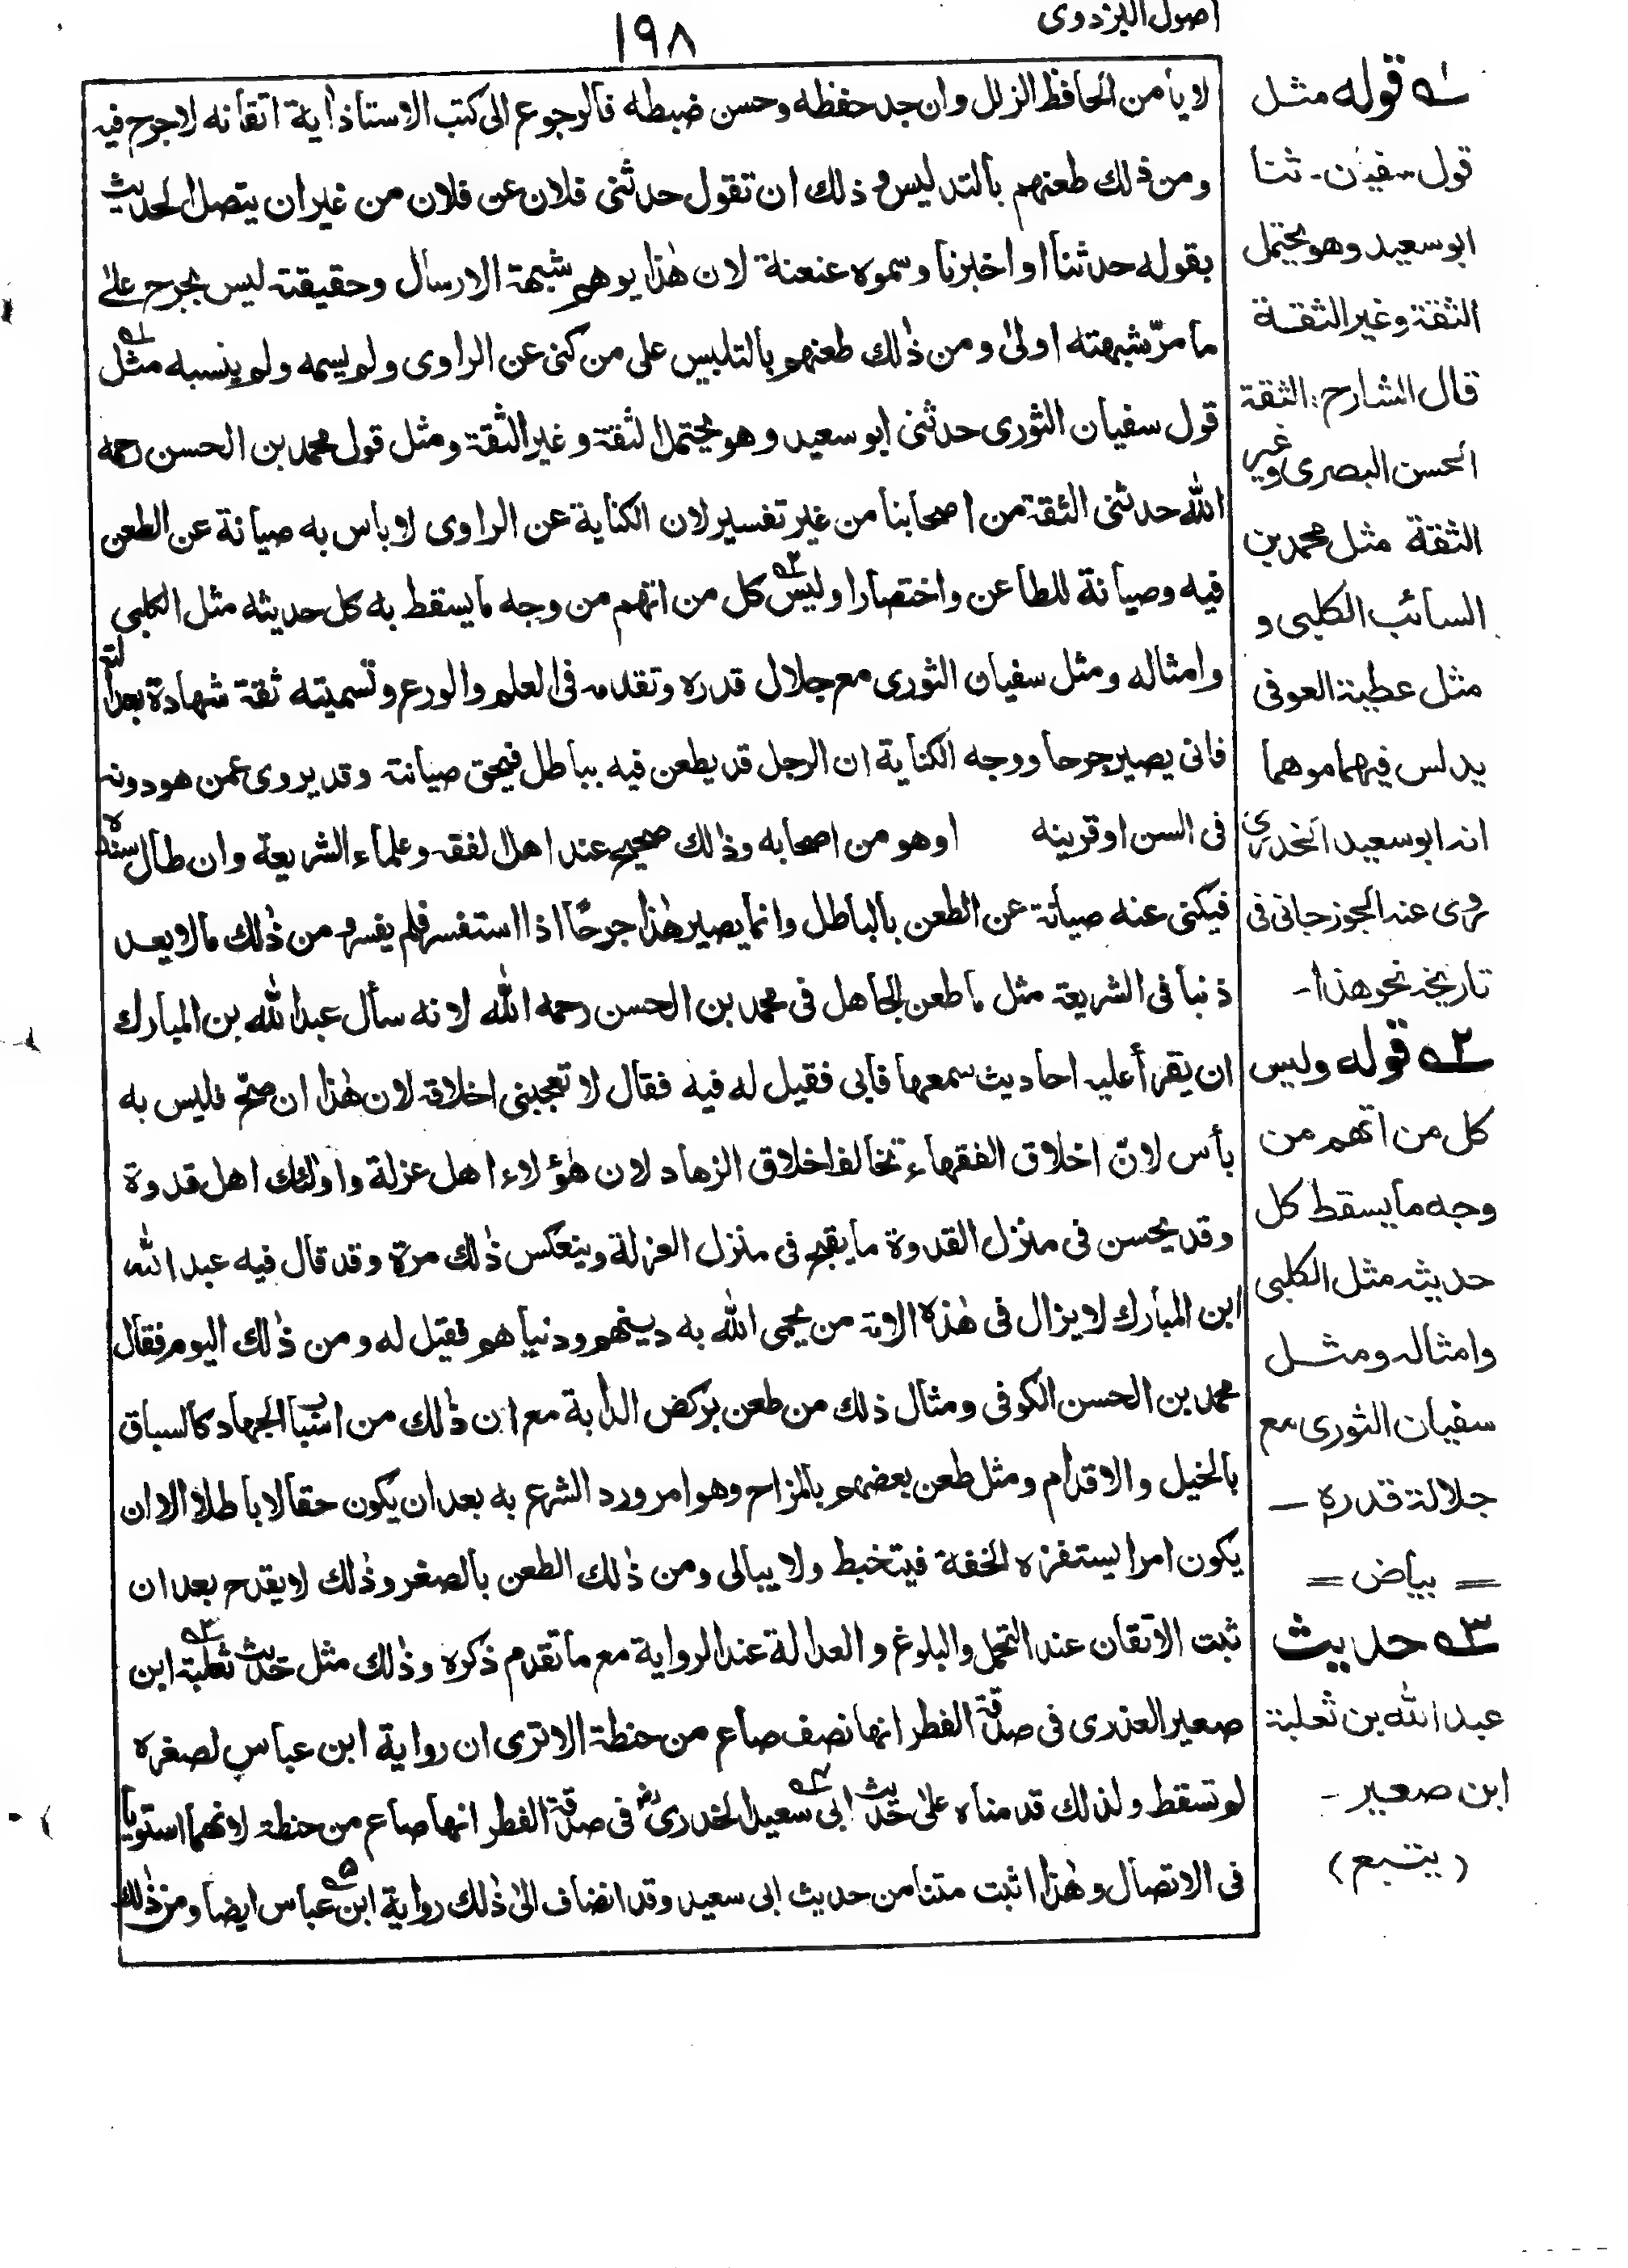 اصول البزدوی
۱۹۸
لا يأمن الحافظ الزلل وان جد حفظه وحسن ضبطه فالرجوع الى كتب الاستاذ اية اتقانه لا جرح فيه
ومن ذلك طعنهم بالتدليس و ذلك ان تقول حدثنى فلان عن فلان من غير ان يتصل الحديث
بقوله حدثنا او اخبرنا وسموه عنعنة لان هٰذا يوهم شبهة الارسال وحقيقته ليس بجرح علىٰ
ما مرّ شبهته اولىٰ ومن ذٰلك طعنهم بالتلبيس على من كنى عن الراوى ولم يسمه ولم ينسبه مثل ۱ھ
قول سفيان الثورى حدثنى ابو سعيد وهو يحتمل الثقة وغير الثقة ومثل قول محمد بن الحسن رحمه
الله حدثنى الثقة من اصحابنا من غير تفسير لان الكناية عن الراوى لا باس به صيانة عن الطعن
فيه وصيانة للطاعن واختصارا وليس ۲ھ كل من اتهم من وجه ما يسقط به كل حديثه مثل الكلبى
وامثاله ومثل سفيان الثورى مع جلال قدره وتقدمه فى العلم والورع وتسميته ثقة شهادة بعدالته
فانى يصير جرحا ووجه الكناية ان الرجل قد يطعن فيه بباطل فيحق صيانته وقد يروى عمن هو دونه
فى السن او قرينه او هو من اصحابه وذٰلك صحيح عند اهل لفقه وعلماء الشريعة وان طال سنده
فيكنى عنه صيانة عن الطعن بالباطل وانما يصير هٰذا جرحًا اذا استفسر فلم يفسر ومن ذٰلك ما لا يعد
ذنبا فى الشريعة مثل ما طعن الجاهل فى محمد بن الحسن رحمه الله لانه سأل عبد الله بن المبارك
ان يقرأ عليه احاديث سمعها فابى فقيل له فيه فقال لا تعجبنى اخلاقه لان هٰذا ان صحّ فليس به
بأس لانّ اخلاق الفقهاء تخالف اخلاق الزهاد لان هٰؤلاء اهل عزلة واولٰئك اهل قدوة
وقد يحسن فى منزل القدوة ما يقبح فى منزل العزلة وينعكس ذٰلك مرة وقد قال فيه عبد الله
ابن المبارك لا يزال فى هٰذه الامة من يحمى الله به دينهم ودنياهم فقيل له ومن ذٰلك اليوم فقال
محمد بن الحسن الكوفى ومثال ذلك من طعن بركض الدابة مع ان ذٰلك من اسباب الجهاد كالسباق
بالخيل والاقدام ومثل طعن بعضهم بالمزاح وهو امر ورد الشرع به بعد ان يكون حقا لا باطلا الا ان
يكون امرا يستفزه الخفة فيتخبط ولا يبالى ومن ذٰلك الطعن بالصغر وذٰلك لا يقدح بعد ان
ثبت الاتقان عند التحمل والبلوغ والعدالة عند الرواية مع ما تقدم ذكره وذٰلك مثل حديث ۳ھ ثعلبة ابن
صعير العذرى فى صدقة الفطر انها نصف صاع من حنطة الا ترى ان رواية ابن عباس لصغره
لم تسقط ولذلك قدمناه علىٰ حديث ۴ھ ابى سعيد الخدرىؓ فى صدقة الفطر انها صاع من حنطة لانهما استويا
فى الاتصال وهٰذا اثبت متنا من حديث ابى سعيد وقد انضاف الىٰ ذٰلك رواية ابن ۵ھ عباس ايضا ومن ذٰلك
۱ھ قوله مثل
قول سفيٰن- ثنا
ابو سعيد وهو يحتمل
الثقة وغير الثقة
قال الشارح: الثقة
الحسن البصرى وغير
الثقة مثل محمد بن
السائب الكلبى و
مثل عطية العوفى
يدلس فيهما موهما
انه ابو سعيد الخدرى
روى عنه الجوزجانى فى
تاريخه نحو هذا-
۲ھ قوله وليس
كل من اتهم من
وجه ما يسقط كل
حديثه مثل الكلبى
وامثاله ومثل
سفيان الثورى مع
جلالة قدره —
= بياض =
۳ھ حديث
عبد الله بن ثعلبة
ابن صعير -
(يتبع)